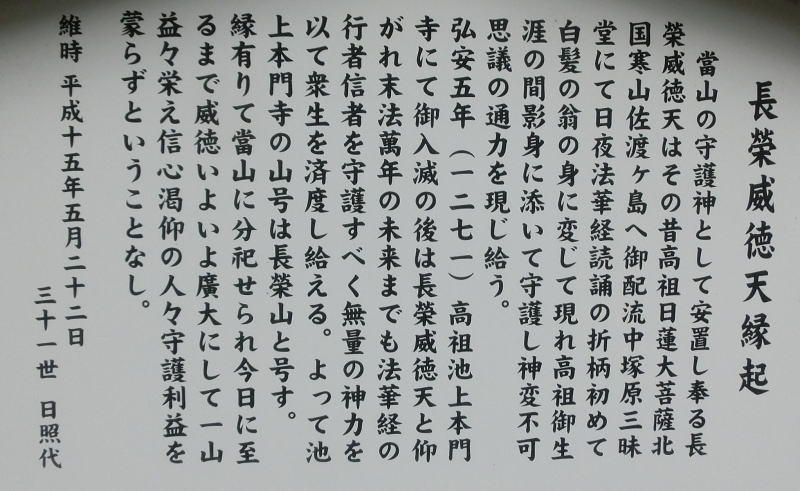 長榮威徳天縁起
當山の守護神として安置し奉る長
榮威徳天はその昔高祖日蓮大菩薩北
国寒山佐渡ヶ島へ御配流中塚原三昧
堂にて日夜法華経読誦の折柄初めて
白髪の翁の身に変じて現れ高祖御生
涯の間影身に添いて守護し神変不可
思議の通力を現じ給う。
弘安五年（一二七一）高祖池上本門
寺にて御入滅の後は長榮威徳天と仰
がれ末法萬年の未来までも法華経の
行者信者を守護すべく無量の神力を
以て衆生を済度し給える。よって池
上本門寺の山号は長榮山と号す。
縁有りて當山に分祀せられ今日に至
るまで威徳いよいよ廣大にして一山
益々栄え信心渇仰の人々守護利益を
蒙らずということなし。
維時 平成十五年五月二十二日
三十一世 日照代